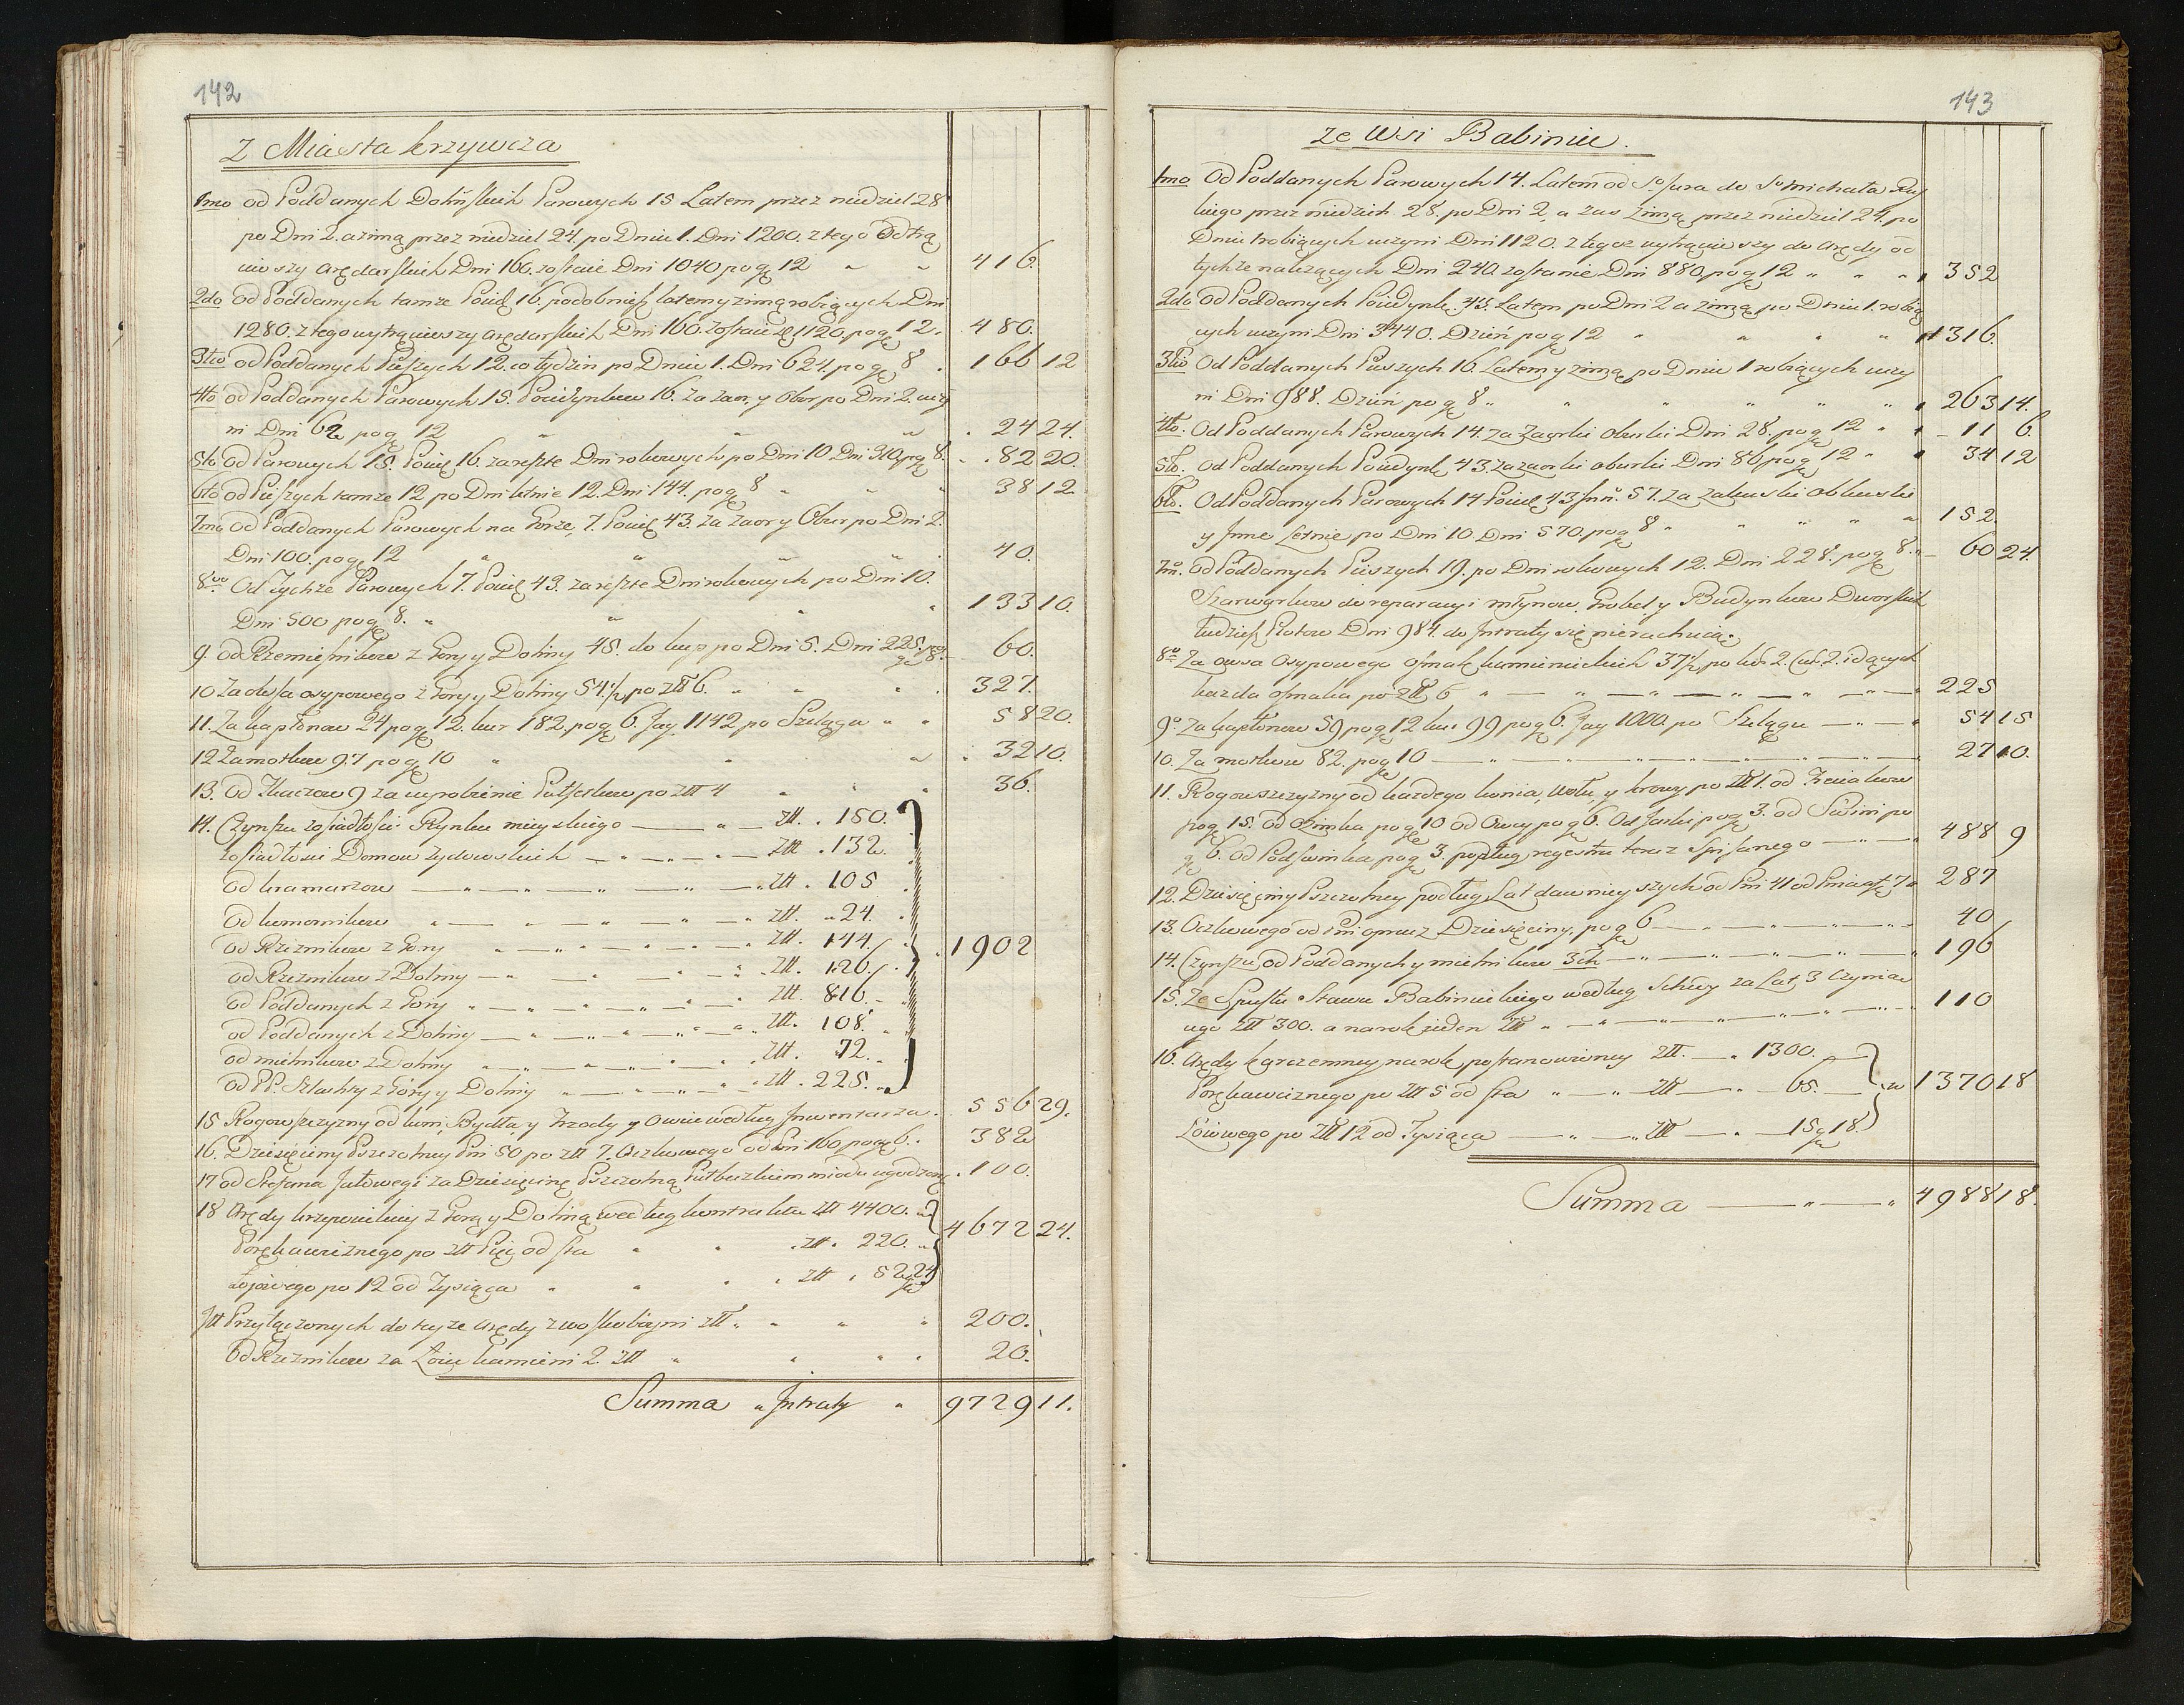 142
Z Miasta Krzywcza
1mo od Poddanych Dolińskich Parowych 15 Latem przez niedziel 28
po Dni 2. a zimą przez niedziel 24. po Dniu 1. Dni 1200. z tego odtrą
ciwszy Arędarskich Dni 160. zostaie Dni 1040 po gę 12 " " 416.
2do od Poddanych tamże Poied 16. podobnież latem y zimą robiących Dni
1280. z tego wytrąciwszy Arędarskich Dni 160. zostaie się 1120, po gę 12. 480.
3tio od Poddanych Pieszych 12. co tydzień po Dniu 1. Dni 624. po gę 8 . 166 12
4to od Poddanych Parowych 15. Poiedynków 16. za zaor. y Obor po Dni 2. czy
ni Dni 62 po gę 12 " " " . 24 24.
5to od Parowych 15. Poied 16. za reszte Dni rokowych po Dni 10 Dni 310, po gę 8. . 82 20.
6to od Pieszych tamże 12 po Dni letnie 12. Dni 144. po gę 8 " " " 38 12.
7mo od Poddanych Parowych na Górze, 7. Poied 43. za zaor y Obor po Dni 2.
Dni 100. po gę 12 " " " " . 40.
8vo Od Tychże Parowych 7. Poied 43. za reszte Dni rokowych po Dni 10.
Dni 500 po gę 8. " " " " 133 10.
9. od Rzemieśników z Góry y Doliny 45. do kup po Dni 5. Dni 225. po gę 8. 60.
10 Za Owsa osypowego z Góry y Doliny 54 1/2 po Złł 6. " " " . 327.
11. Za kapłonow 24 po gę 12. kur 182, po gę 6. Jay 1142 po Szelągu " " 58 20.
12 Za motkow 97 po gę 10 " " " . 32 10.
13. od Tkaczow 9 za wyrobienie Półsetkow po Złł 4 " " " 36.
14. Czynszu z osiadłości Rynku mieyskiego — " — Złł. . 150.
z osiadłości Domow żydowskich — " — " — " — Złł . 132.
od kramarzow — " — " — " — " — Złł . 105
od komornikow " — " — " — " — " Złł. " 24.
od Rzeznikow z Góry " — " " — " — " — Złł. 144.
od Rzeznikow z Doliny — " — " — " — " . Złł. 120. . 1902
od Poddanych z Góry " — " — " — " — " Złł. 816.
od Poddanych z Doliny — " — " — " — " . Złł. 108.
od mielnikow z Doliny " — " — " — " . Złł. 72.
od PP. Szlachty z Góry y Doliny " — " — " — " Złł. 225.
15 Rogowszczyzny od koni, Bydła, y Trzody y Owiec według Jnwentarza . 556 29.
16. Dziesięciny Pszczolney Pni 50 po złł 7. Oczkowego od Pni 160 po gę 6. . 382
17 od Stefana za Dziesięcinę Pszczolną Półbeczkiem miodu ugodzony . 100.
18 Arędy krzywieckiey z Górą y Doliną według kontraktu Złł 4400.
Porękawicznego po Złł Pięć od sta " " . Złł. 220. 4672 24.
Łojowego po 12 od Tysiąca " " " . Złł . 52 gę 24
Jtt Przyłączonych do teyże Arędy z woskoboyni złł. " " " 200.
od Rzeznikow za Łóiu kamieni 2. złł " " " . 20.
Summa " Jntraty " 9729 11.
143
ze Wsi Babiniec.
1mo Od Poddanych Parowych 14. Latem od S°. Jura do S° Michała Rus
kiego przez niedziel 28. po Dni 2, a zas zimą przez niedziel 24. po
Dniu 1 robiących uczyni Dni 1120. z tegoz wytrąciwszy do Arędy od
tychże nalezących Dni 240. zostanie Dni 880, po gę 12 " " " 352
2do Od Poddanych Poiedynk. 43. Latem po Dni 2 a zimą po Dniu 1. robią
cych uczyni Dni 3440. Dzień po gę 12 " " " " 1316.
3tio Od Poddanych Pieszych 16. Latem y zimą po Dniu 1 robiących uczy
ni Dni 988. Dzień po gę 8 " " " " " " 263 14.
4to. Od Poddanych Parowych 14. za zaorki oborki Dni 28, po gę 12 " " — 11 6.
5to. Od Poddanych Poiedynk 43. za zaorki oborki Dni 86 po gę 12 " " 34 12
6to. Od Poddanych Parowych 14 Poied 43 Jnn. 57. za zakoski obkoski
y Jnne Letnie po Dni 10. Dni 570. po gę 8 " " " " " 152.
7mo. od Poddanych Pieszych 19. po Dni rokowych 12. Dni 228. po gę 8. " — 60 24.
Szarwarkow do reparacyi młynow, Grobel, y Budynkow Dworskich
tudzież Płotow Dni 984. do Jntraty się nie rachuie.
8o Za Owsa Osypowego osmak kamienieckich 37 1/2 po kor 2. Ćwi. 2. idących
każda osmaka po Złł 6 " — " — " — " — " — " — 225
9o Za kapłonow 59 po gę 12 kur 99 po gę 6. Jay 1000. po Szelągu — " — " 54 15
10. Za motkow 82. po gę 10 — " — " — " — " — " — 27 10.
11. Rogowszczyzny od każdego konia, wołu, y krowy po Złł 1. od Zrebiakow
po gę 15. od Ozimka po gę 10 od Owcy po gę 6. Od Jarki po gę 3. od Swini po
gę 6. od Podswinka po gę 3. podług regestru teraz Spisanego — " — " 488 9
12. Dziesięciny Pszczolney podług Lat dawnieyszych od Pni 41 od Pnia złł 7 " 287
13. Oczkowego od Pni oprucz Dziesięciny, po gę 6 — " — " — " — " 40
14. Czynszu od Poddanych y mielnikow 3ch — " — " — " — " — " 196
15. Ze Spustu Stawu Babinieckiego według Schedy za Lat 3 Czyniąc
ego Złł 300. a na rok jeden Złł " — " — " — " — " — " 110
16. Arędy karczemney na rok postanowioney Złł. — " 1300. —
Porękawicznego po Złł 5 od sta " — " — Złł — " — 65. — 1370 18
Łóiowego po Złł 12 od Tysiąca — " — " Złł — " — 15 gę 18.
Summa — " — " 4988 18.